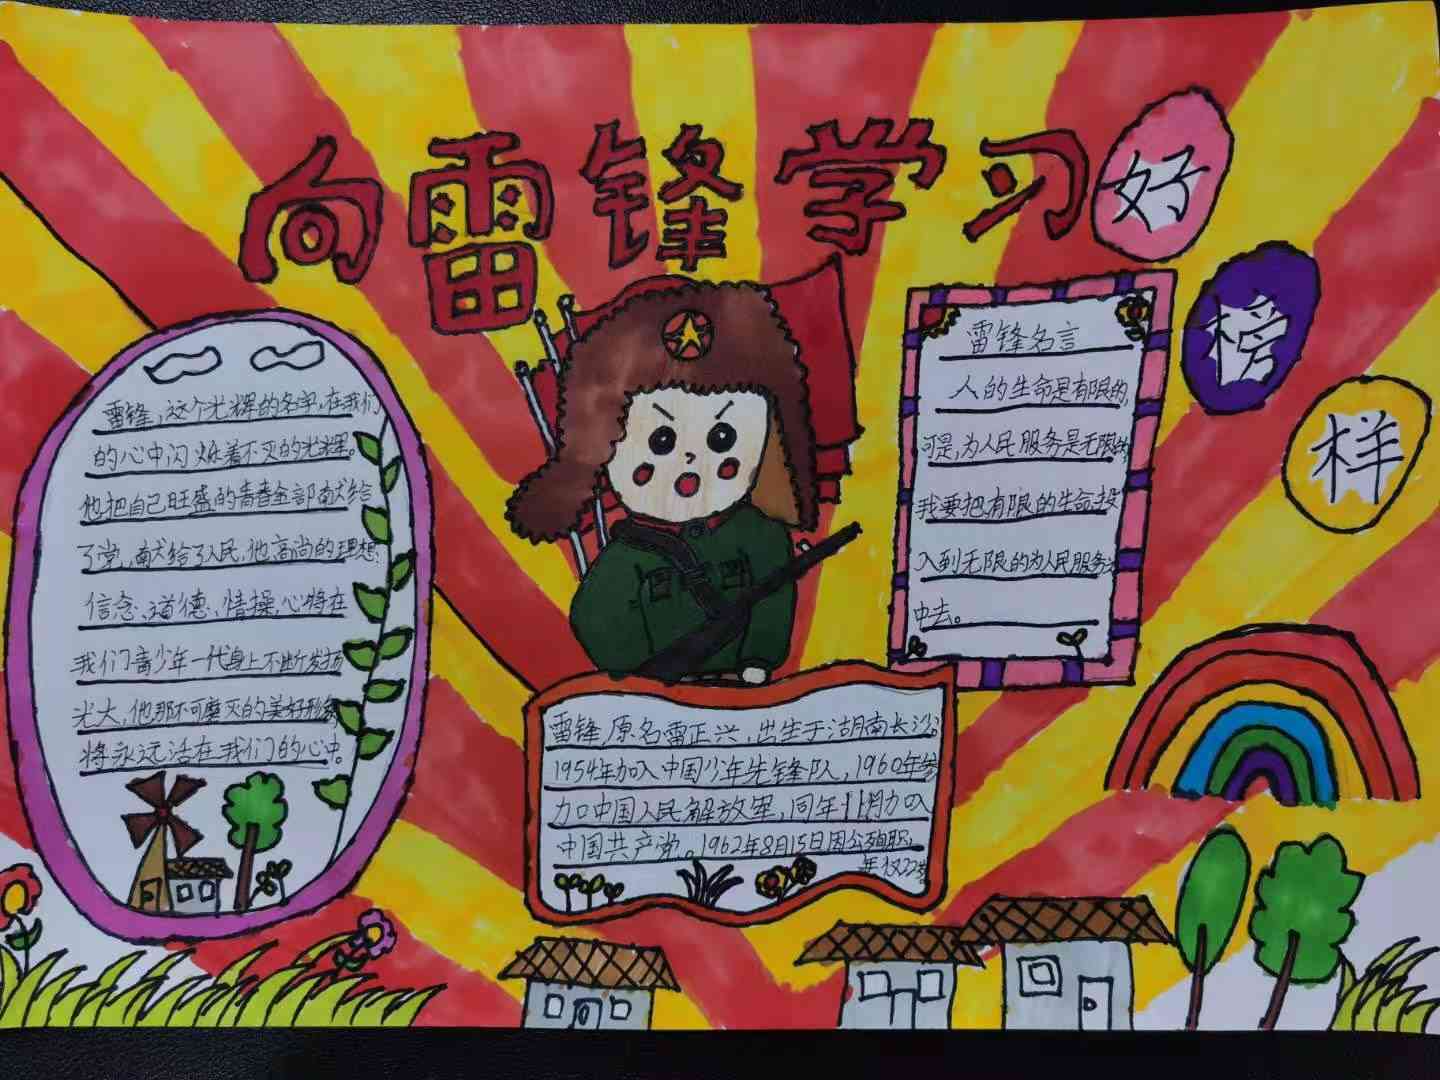 向雷锋学习
好
榜
样
雷锋,这个光辉的名字,在我们
的心中闪烁着不灭的光辉。
他把自己旺盛的青春全部献给
了党,献给了人民,他高尚的理想、
信念、道德、情操,心将在
我们青少年一代身上不断发扬
光大,他那不可磨灭的美好形象
将永远活在我们的心中。
雷锋名言
人的生命是有限的,
可是,为人民服务是无限的,
我要把有限的生命投
入到无限的为人民服务之
中去。
雷锋,原名雷正兴,出生于湖南长沙。
1954年加入中国少年先锋队,1960年参
加中国人民解放军,同年11月加入
中国共产党。1962年8月15日因公殉职,
年仅22岁